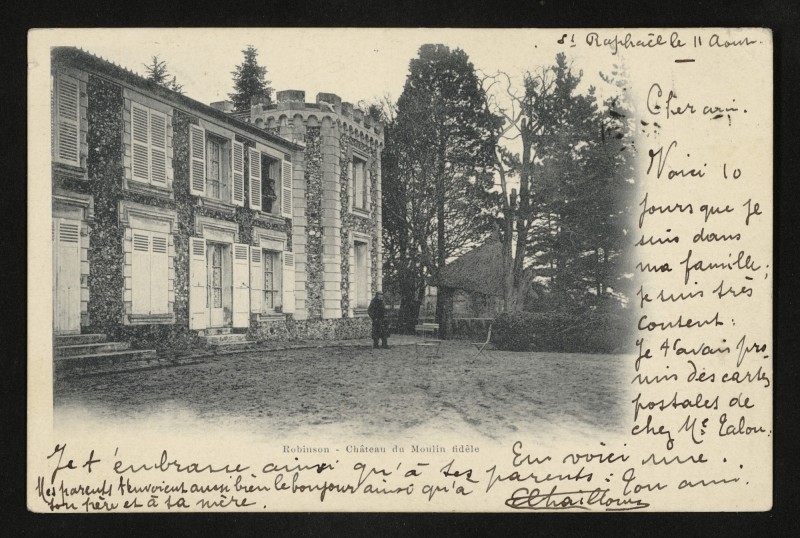 St Raphaël le 11 Aout
Cher ami.
Voici 10
jours que je
suis dans
ma famille;
je suis très
content:
Je t'avais pro-
mis des cartes
postales de
chez Me Talou:
En voici une.
Robinson - Château du Moulin fidèle
Je t'embrasse ainsi qu'à tes parents: Ton ami.
Mes parents t'envoient aussi bien le bonjour ainsi qu'à
ton père et à ta mère.